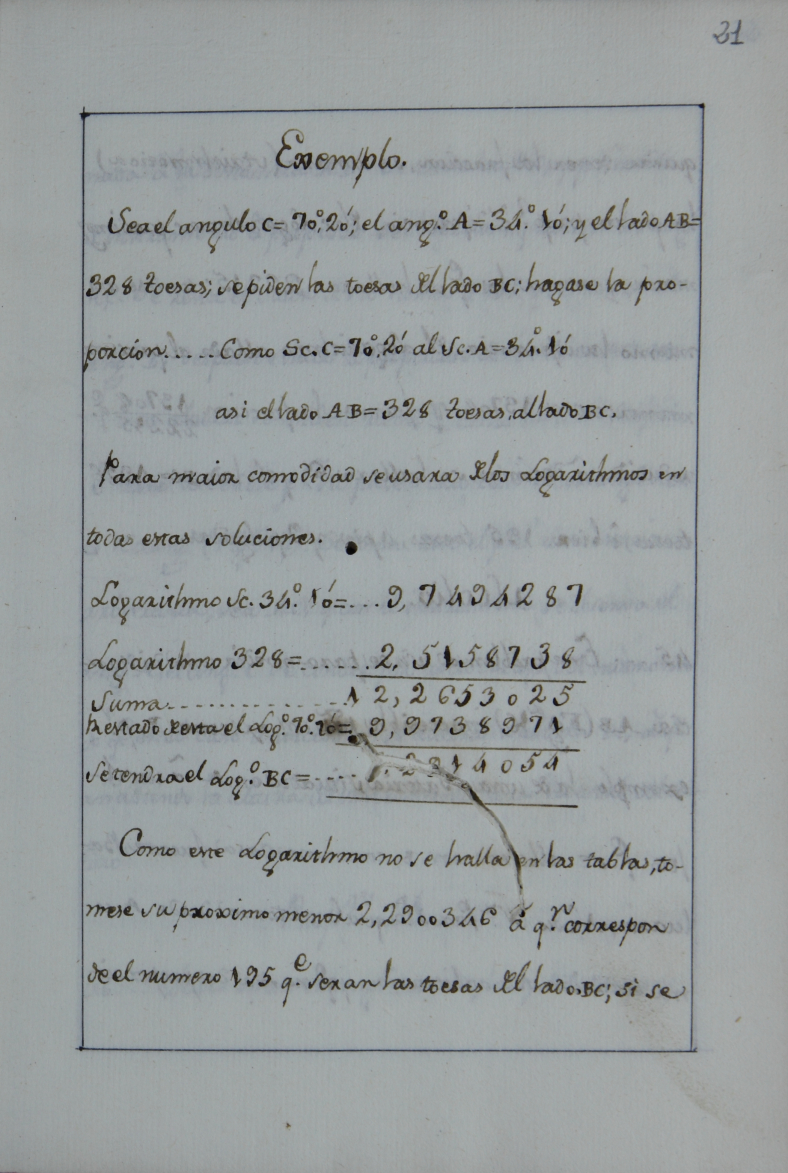 21
Exemplo.
Sea el angulo C= 70°,20'; el ang.° A= 34.° 10'; y el lado AB=
328 toesas; se piden las toesas del lado BC; hagase la pro-
porcion..... Como Sc. C= 70°,20' al Sc. A= 34°. 10'
asi el lado AB= 328 toesas, al lado BC.
Para maior comodidad se usara de los Logarithmos en
todas estas soluciones.
Logarithmo Sc. 34.° 10'=... 9, 7494287
Logarithmo 328=...... 2, 5158738
Suma.............. 12, 2653025
Restado de esta el Log.° 70°. 20'= 9, 9738971
Se tendra el Log.° BC=.... 14054
Como este Logarithmo no se halla en las tablas, to-
mese su proximo menor 2,2900346 á q.n correspon
de el numero 195 q.e seran las toesas del lado BC; si se